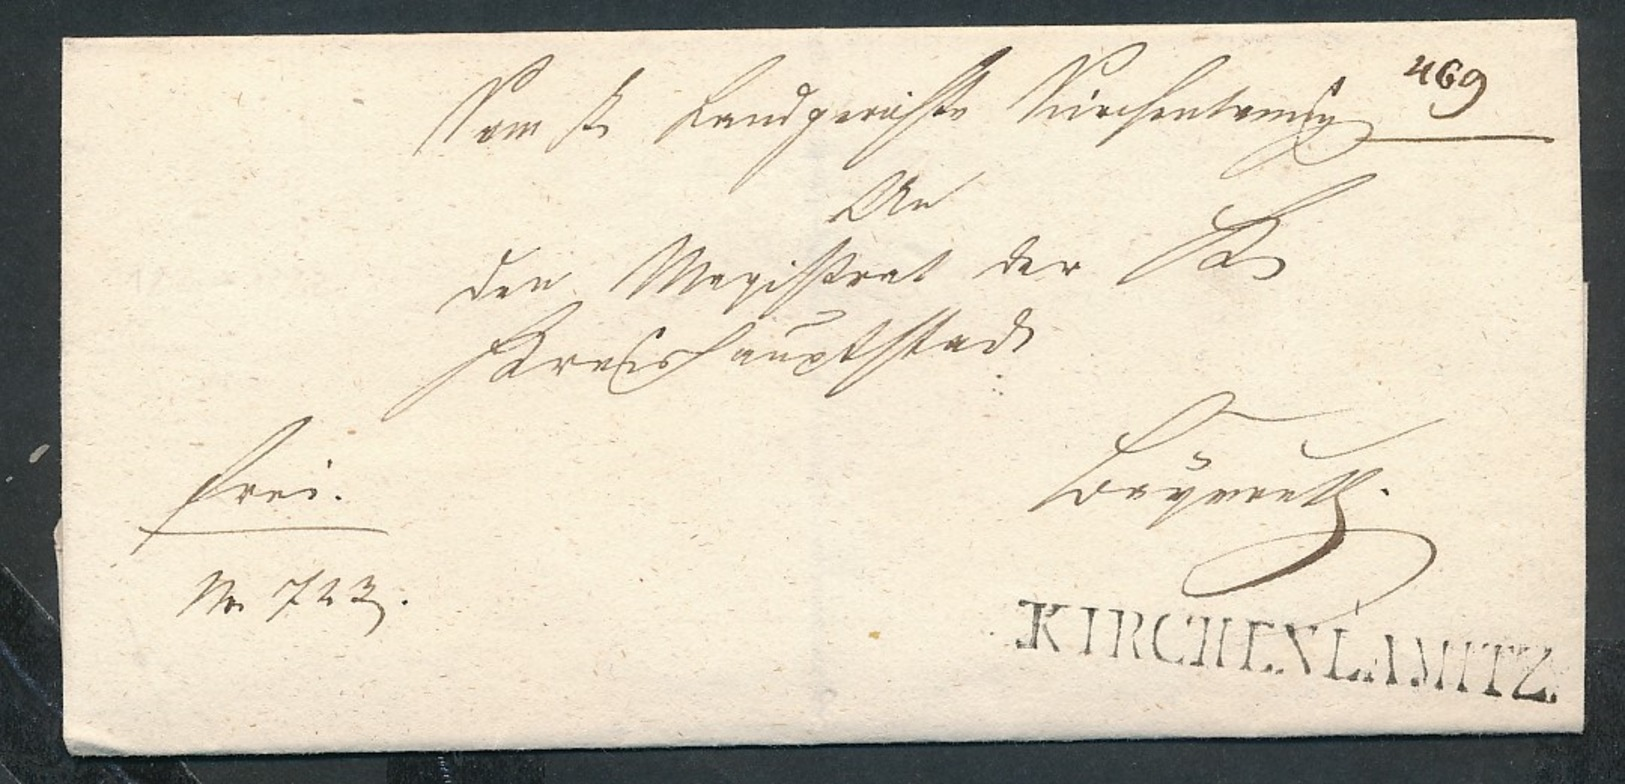 Vom K. Landgerichte Kirchenlamitz
469
An
den Magistrat der K.
Kreishauptstadt
Bayreuth.
frei.
No 723.
KIRCHENLAMITZ.